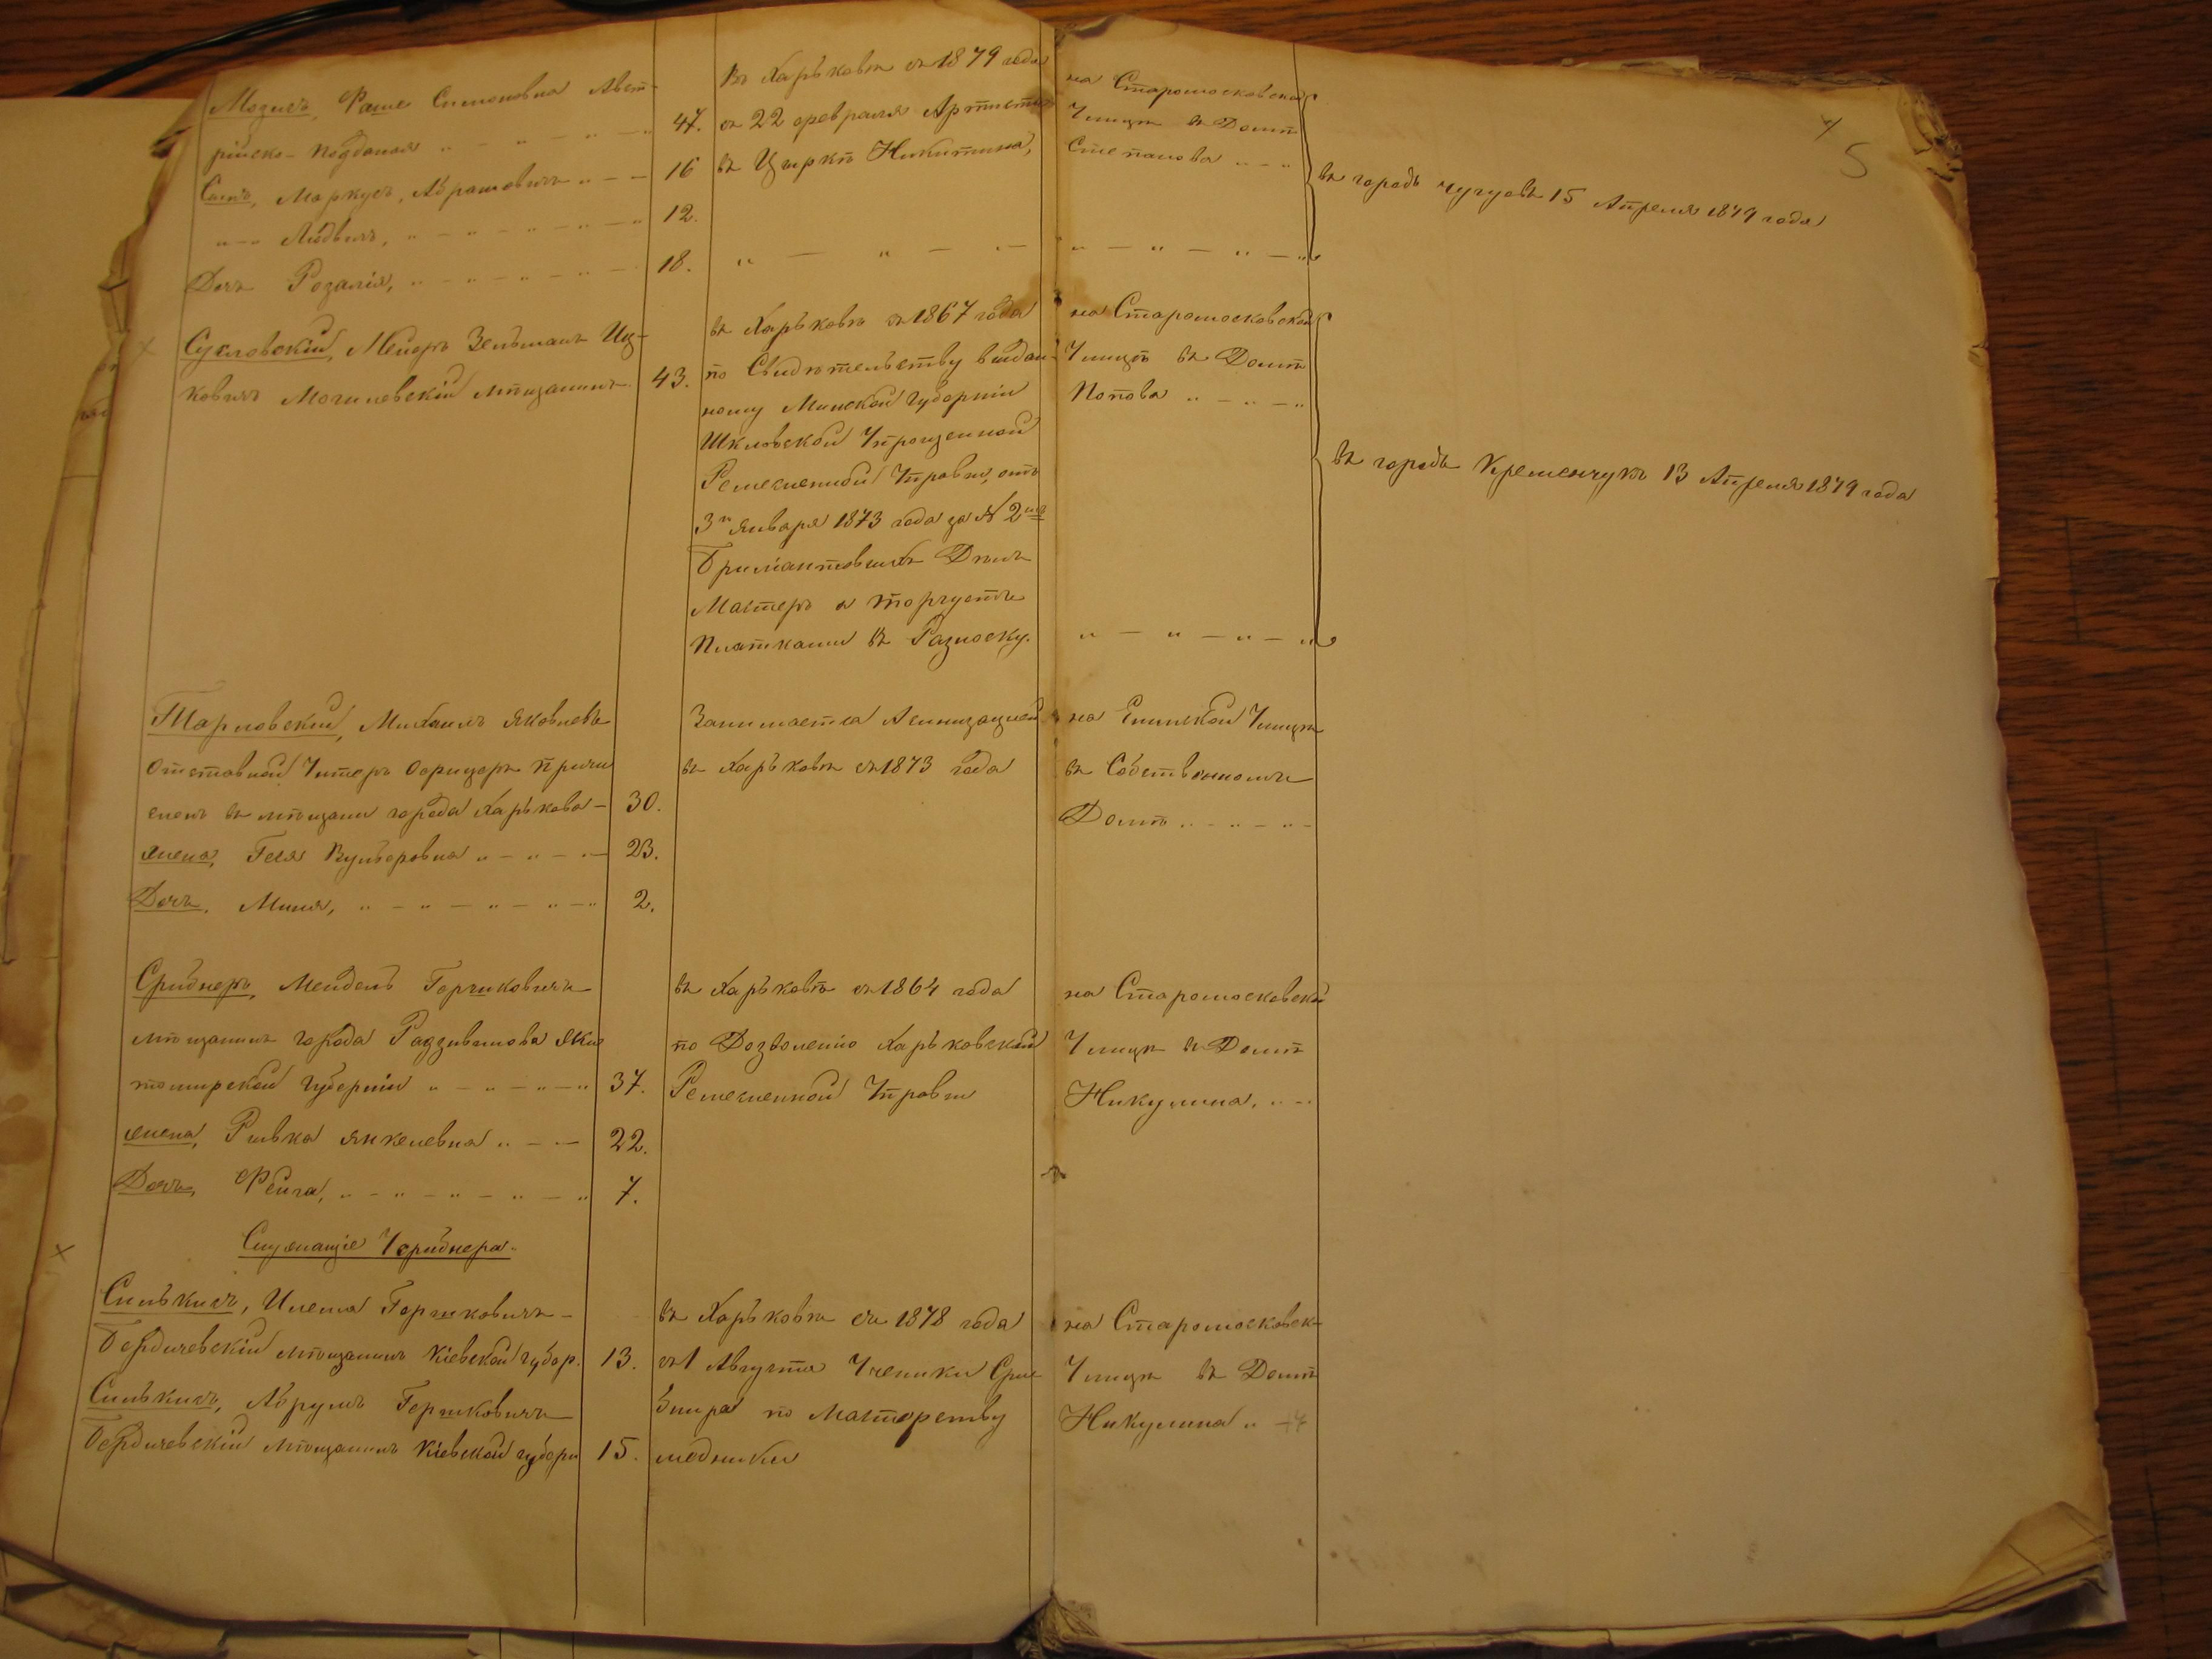 Мозесъ, Фане Симоновна Авст-
рійско-Подданая " - " - " 47.
Сынъ, Маркусъ, Абрамовичъ " - - 16
" - " Людвигъ, " - " - " - " - " 12.
Дочь Розалія, " - " - " - " - 18.
Въ Харьковѣ съ 1879 года
съ 22 февраля Артистъ
въ Циркѣ Никитина,
" — " — " —
на Старомосковской
Улицѣ въ Домѣ
Степанова " - "
" — " — " — "
въ городъ Чугуевъ 15 Апрѣля 1879 года
5
Сукловскій, Мееръ Зельманъ Иц-
ковичъ Могилевскій мѣщанинъ 43.
въ Харьковѣ съ 1867 года
по Свидѣтельству выдан-
ному Минской Губерніи
Шкловской Упрощенной
Ремесленной Управы, отъ
3го Января 1873 года за № 2мъ
Бриліантовыхъ Дѣлъ
Мастеръ и торгуетъ
Платками въ Разноску.
на Старомосковской
Улицѣ въ Домѣ
Попова " - " - "
" — " — " — "
въ городъ Кременчугъ 13 Апрѣля 1879 года
Тарловскій, Михаилъ Яковлевъ
Отставной Унтеръ Офицеръ причи
сленъ въ мѣщани города Харькова - 30.
жена, Геся Вульфовна " - " - " 23.
Дочь, Миня, " - " - " - " - " 2.
Занимается
въ Харьковѣ съ 1873 года
на Улицѣ
въ Собственномъ
Домѣ " - " - " -
Сриднеръ, Мендель Гершковичъ
мѣщанинъ города Радзивилова Жи
томирской Губерніи " - " - " - " 37.
жена, Ривка Янкелевна " - " - 22.
Дочь, Фейга, " - " - " - " - " 7.
въ Харьковѣ съ 1864 года
по Дозволенію Харьковской
Ремесленной Управы
на Старомосковской
Улицѣ въ Домѣ
Никулина, " -
Служащіе У Сриднера.
Силькисъ, Илема Гершковичъ -
Бердичевскій мѣщанинъ Кіевской Губер. 13.
Силькисъ, Абрумъ Гершковичъ
Бердичевскій мѣщанинъ Кіевской губерн 15.
въ Харьковѣ съ 1878 года
съ 1 Августа Ученики
по Мастерству
медники
на Старомосковск-
Улицѣ въ Домѣ
Никулина "